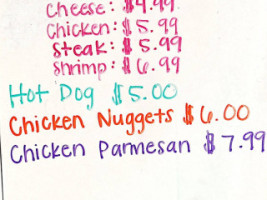 Cheese: $4.99
Chicken: $5.99
Steak: $5.99
Shrimp: $6.99
Hot Dog $5.00
Chicken Nuggets $6.00
Chicken Parmesan $7.99